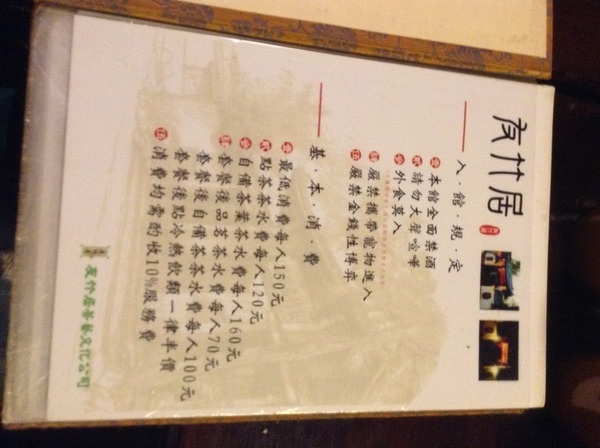 友竹居
入·館·規·定
壹 本館全面禁酒
貳 請勿大聲喧嘩
參 外食莫入
肆 嚴禁攜帶寵物進入
伍 嚴禁金錢性博弈
基·本·消·費
壹 最低消費每人150元
貳 點茶茶水費每人120元
參 自備茶葉茶水費每人160元
肆 套餐後品茗茶水費每人70元
套餐後自備茶茶水費每人100元
套餐後點冷熱飲類一律半價
伍 消費均需酌收10%服務費
友竹居茶藝文化公司